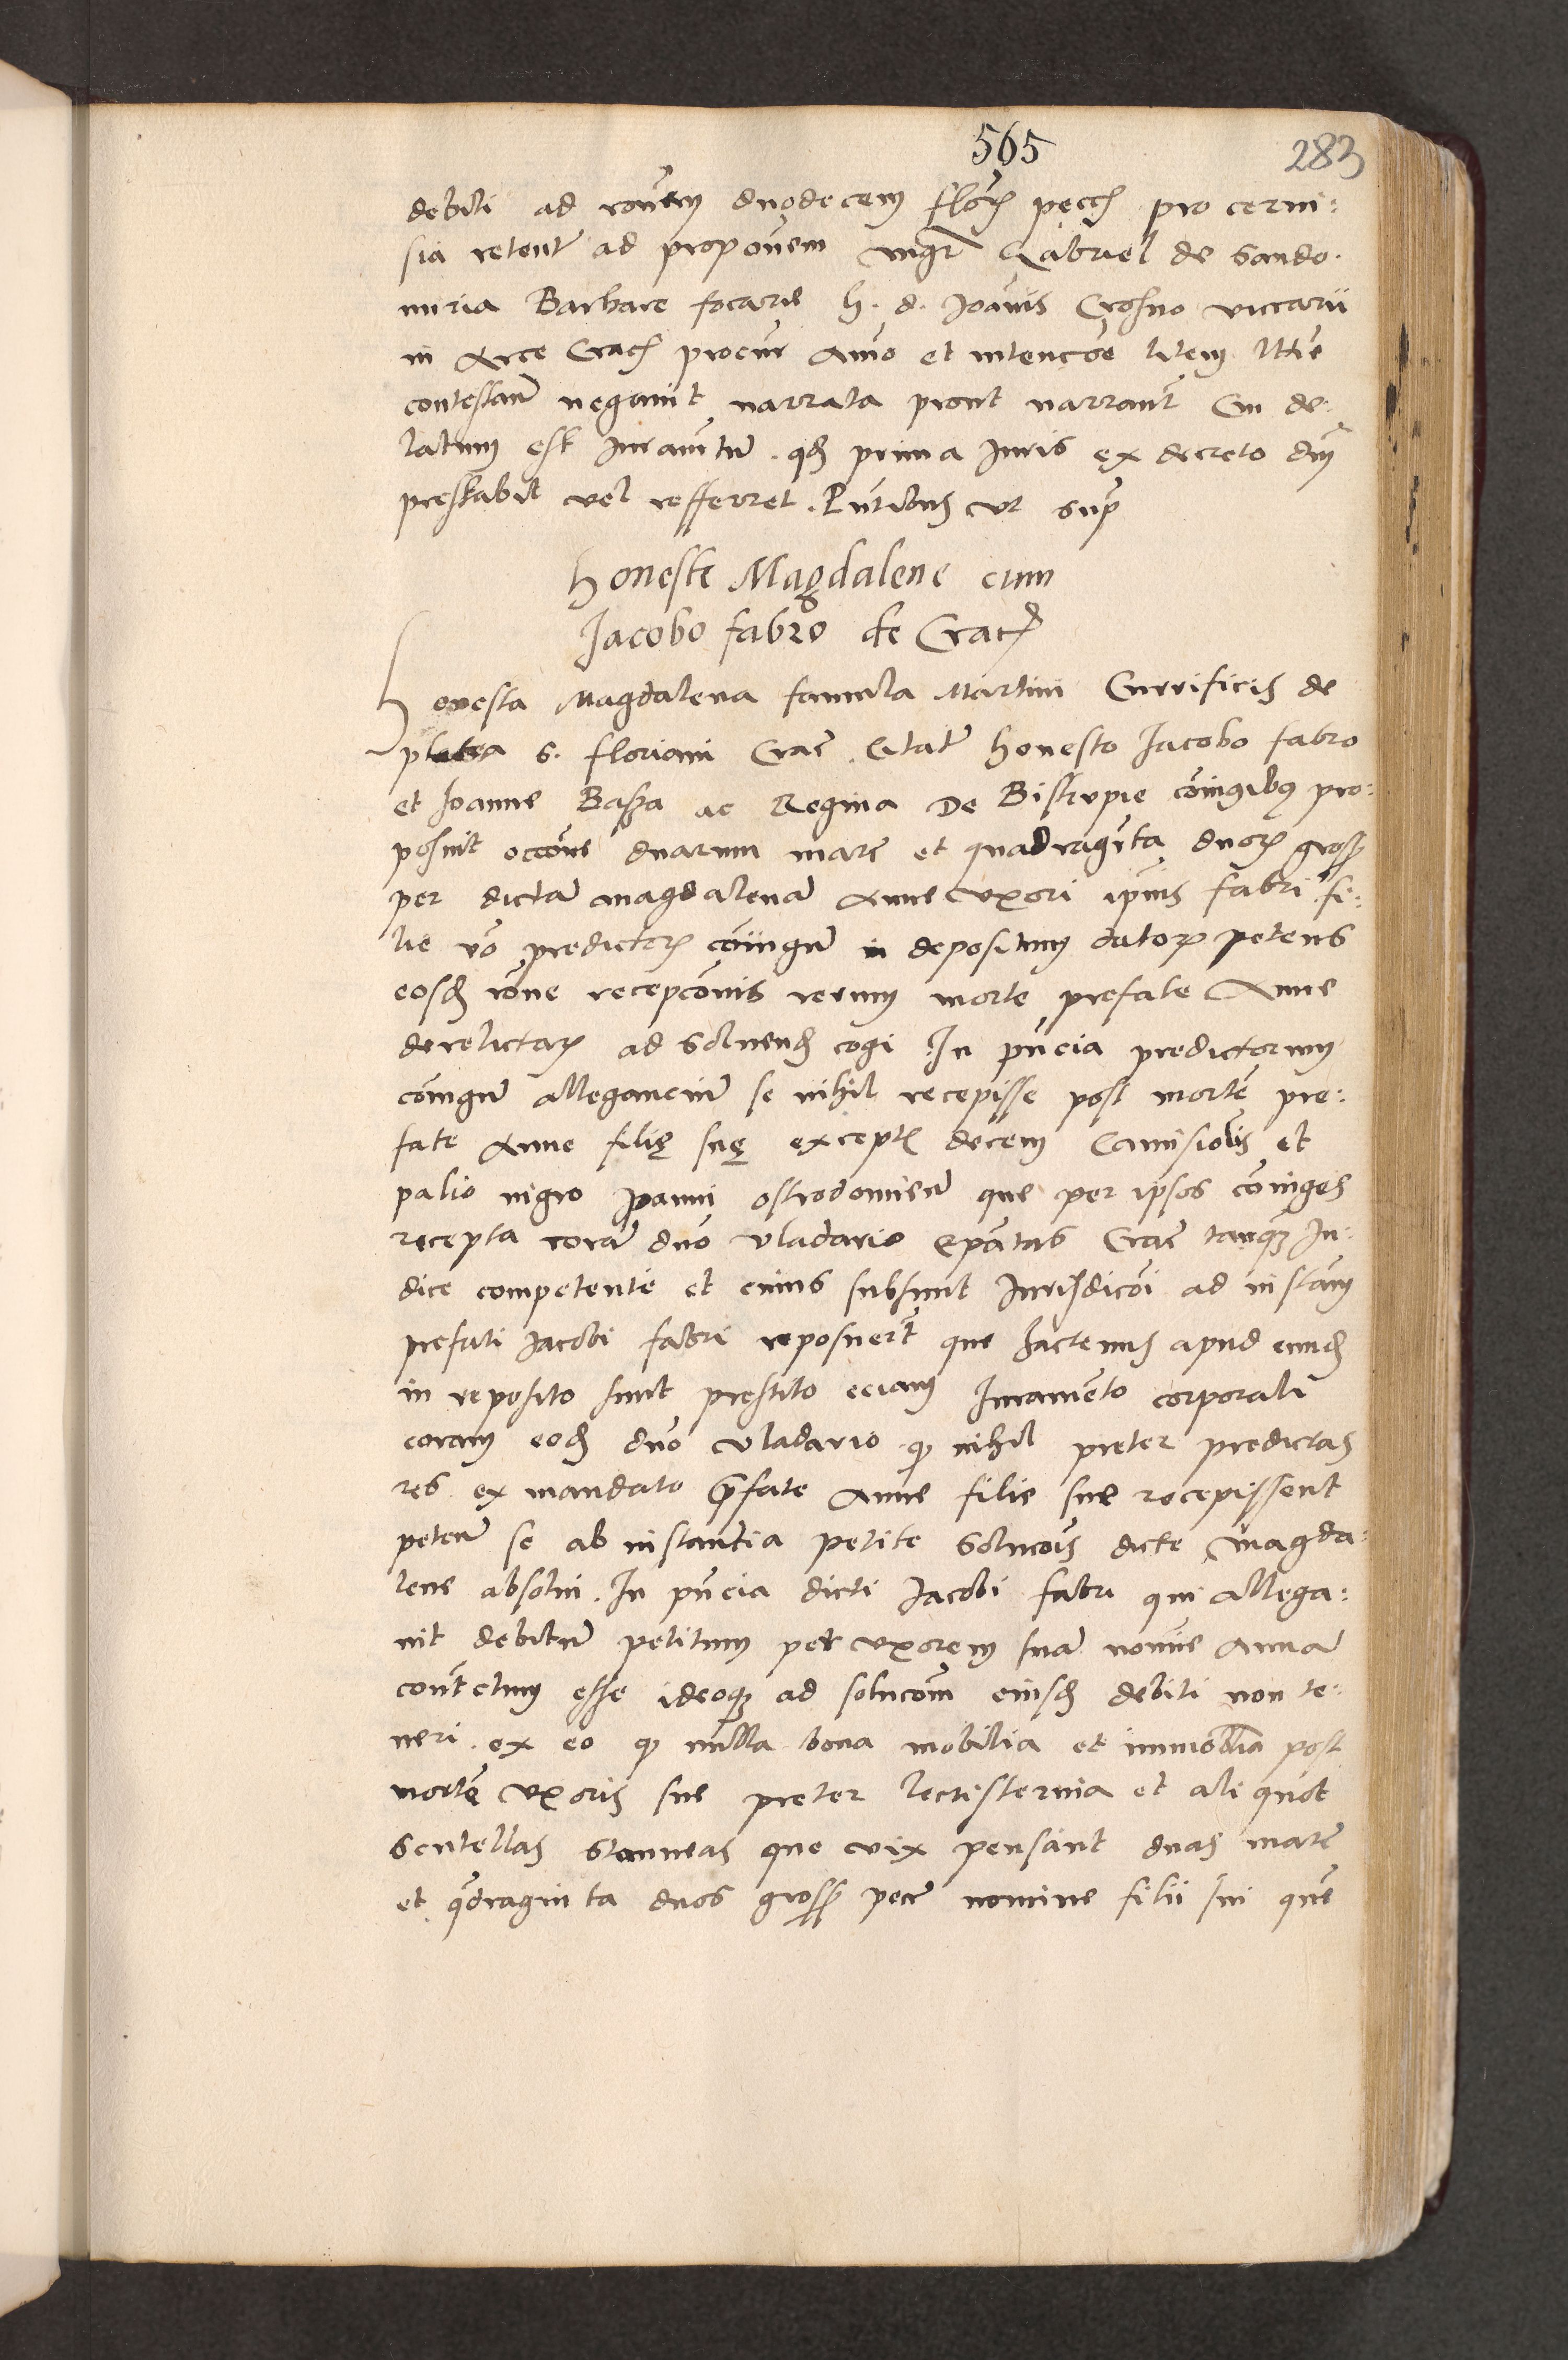 565
283
debiti ad rõnem duodecem floꝝ pecc͠ pro cervi:
sia retent̃ ad propõnem mgr̃i Gabriel de Sando.
miria Barbare focarie h. d. Joãnis Crosno vicarii
in Arce Crac͠ procur̃ animo et intencõe litem l̃tĩe
contestan̄ negavit narrata prout narrant̃ Cui de:
latum est Juramentũ . qd̃ prima Juris ex decreto dñj
prestabit vel refferret . Pñtibus ut sup̃
Honeste Magdalene cum
Jacobo fabro de Crac͠
Honesta Magdalena famula Martini Currificis de
platea S. Floriani Crac̃ . Citat̃ honesto Jacobo fabro
et Joanne Bassza ac Regina De Bistrupie cõiugibus pro:
posuit occõne duarum marc̃ et quadragĩta duoꝝ gross̃
per dictã magdalenã Anne uxori ipsius fabri fi:
lie vo predictoꝝ cõiugũ in depositum datoꝝ petens
eosd̃ rõne recepcõnis rerum morte prefate Anne
derelictaꝝ ad solvend̃ cogi . In pñcia predictorum
cõiugũ allegancium se nihil recepisse post mortẽ pre:
fate Anne filię suę except̃ decem Camisiolis et
palio nigro panni ostrodomien̄ que per ipsos cõiuges
recepta corã dño vladario Ep̃atus Crac̃ tanqꝫ Ju:
dice competente et cuius subsunt Jurisdicõi ad instan̄
prefati Jacobi fabri reposuerũt que hactenus apud eund̃
in reposito sunt prestito eciam Juramẽto corporali
coram eod̃ dño vladario qꝫ nihil preter predictas
res ex mandato p̃fate Anne filie sue recepissent
peten̄ se ab instantia petite solucõis dicte Magda:
lene absolvi . In pñcia dicti Jacobi fabri qui allega:
vit debitum petitum per uxorem suã nomine Anna
contractum esse ideoqꝫ ad solucõm eiusd̃ debiti non te:
neri . ex eo qꝫ nulla bona mobilia et immobilia post
mortẽ uxoris sue preter lectisternia et aliquot
scutellas stanneas que vix pensant duas marc̃
et qᵃdraginta duos gross̃ pecc̃ nomine filii sui que